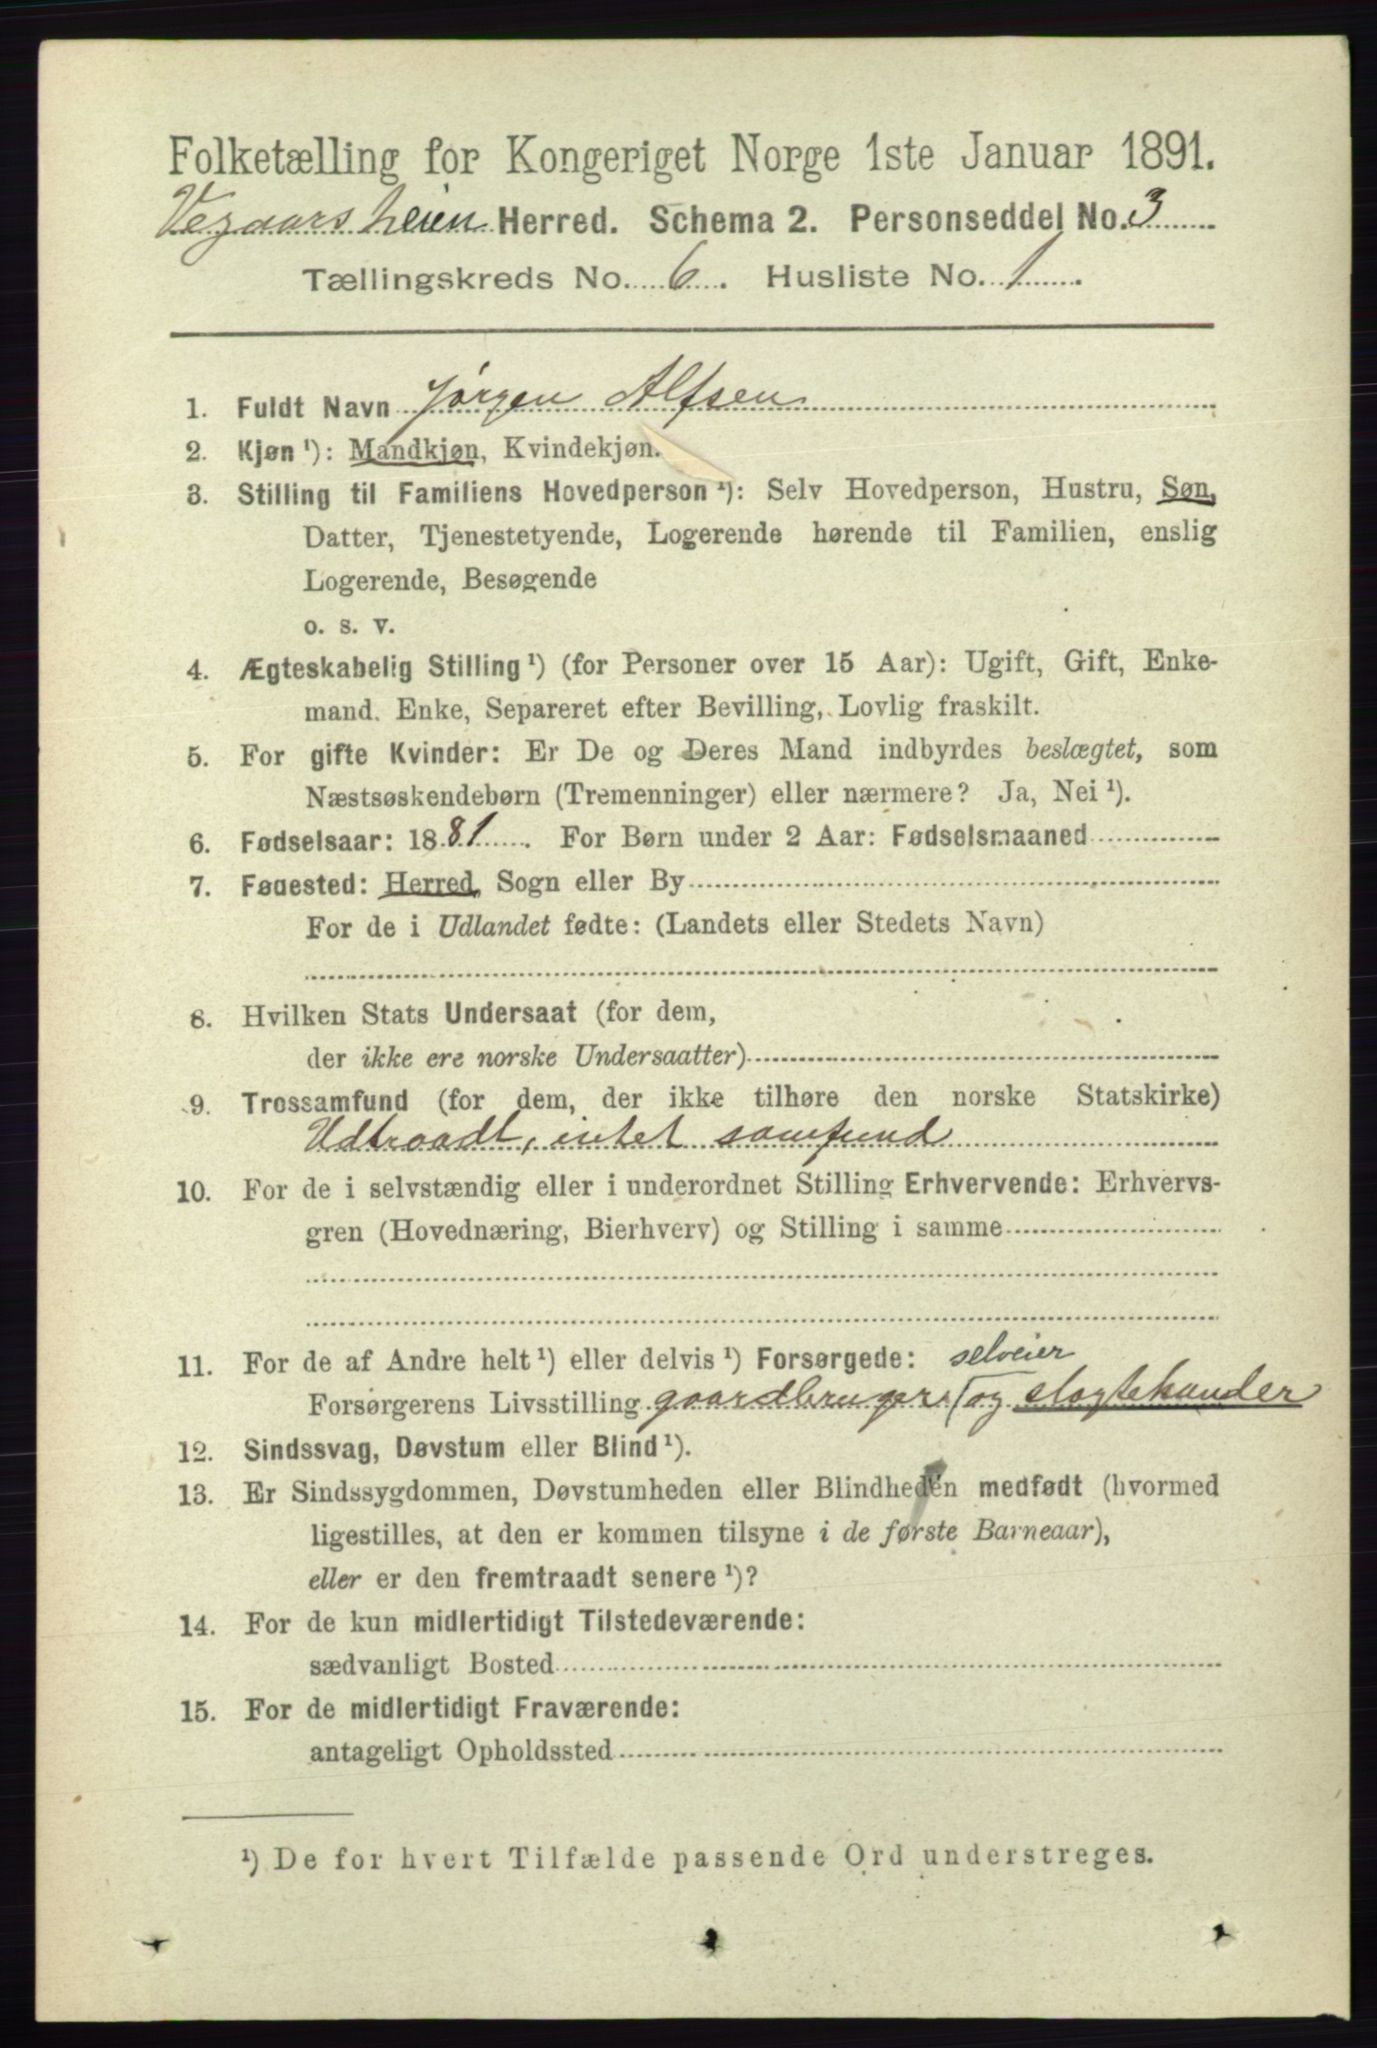 Folketælling for Kongeriget Norge 1ste Januar 1891.
Vegaarsheien Herred. Schema 2. Personseddel No. 3
Tællingskreds No. 6. Husliste No. 1.
1. Fuldt Navn Jørgen Alfsen
2. Kjøn ¹): Mandkjøn, Kvindekjøn.
3. Stilling til Familiens Hovedperson ¹): Selv Hovedperson, Hustru, Søn,
Datter, Tjenestetyende, Logerende hørende til Familien, enslig
Logerende, Besøgende
o. s. v.
4. Ægteskabelig Stilling ¹) (for Personer over 15 Aar): Ugift, Gift, Enke-
mand, Enke, Separeret efter Bevilling, Lovlig fraskilt.
5. For gifte Kvinder: Er De og Deres Mand indbyrdes beslægtet, som
Næstsøskendebørn (Tremenninger) eller nærmere? Ja, Nei ¹).
6. Fødselsaar: 1881. For Børn under 2 Aar: Fødselsmaaned
7. Fødested: Herred, Sogn eller By
For de i Udlandet fødte: (Landets eller Stedets Navn)
8. Hvilken Stats Undersaat (for dem,
der ikke ere norske Undersaatter)
9. Trossamfund (for dem, der ikke tilhøre den norske Statskirke)
Udtraadt, intet samfund
10. For de i selvstændig eller i underordnet Stilling Erhvervende: Erhvervs-
gren (Hovednæring, Bierhverv) og Stilling i samme
11. For de af Andre helt ¹) eller delvis ¹) Forsørgede: selveier
Forsørgerens Livsstilling gaardbruger og slagtehandler
12. Sindssvag, Døvstum eller Blind ¹).
13. Er Sindssygdommen, Døvstumheden eller Blindheden medfødt (hvormed
ligestilles, at den er kommen tilsyne i de første Barneaar),
eller er den fremtraadt senere ¹)?
14. For de kun midlertidigt Tilstedeværende:
sædvanligt Bosted
15. For de midlertidigt Fraværende:
antageligt Opholdssted
¹) De for hvert Tilfælde passende Ord understreges.